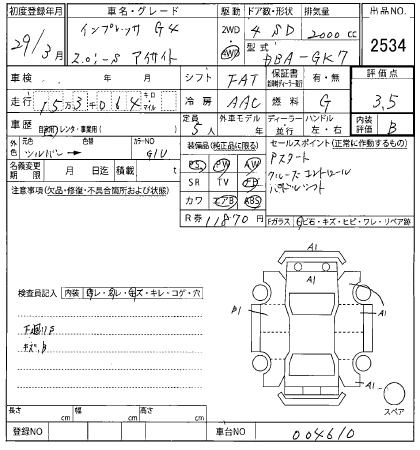 初度登録年月 車名・グレード 駆動 ドア数・形状 排気量 出品NO.
29年/3月 インプレッサ G4 2WD 4WD 4 SD 2000cc 2534
2.0i-S アイサイト 型式 DBA-GK7
車検 年 月 シフト FAT 保証書 有・無 評価点
走行 15万3千064キロ マイル 冷房 AAC 燃料 G 3.5
車歴 自家用 レンタ・事業用( ) 定員 5人 外車モデル 年 ディーラー 並行 ハンドル 左・右 内装評価 B
外色 元色 シルバー 色替 カラーNO G1U 装備品(純正品に限る) セールスポイント(正常に作動するもの)
名義変更期限 月 日迄 積載 t PS PW AW Pスタート
注意事項(欠品・修復・不具合箇所および状態) SR TV ナビ クルーズコントロール
カワ エアB ABS パドルシフト
R券 11870円 Fガラス キズ・ヒビ・ワレ・リペア跡
A1
A1
検査員記入 内装 キズ・キレ・コゲ・穴
B1 A1
下廻りS
A1
スペア
長さ cm 幅 cm 高さ cm
登録NO 車台NO 004610